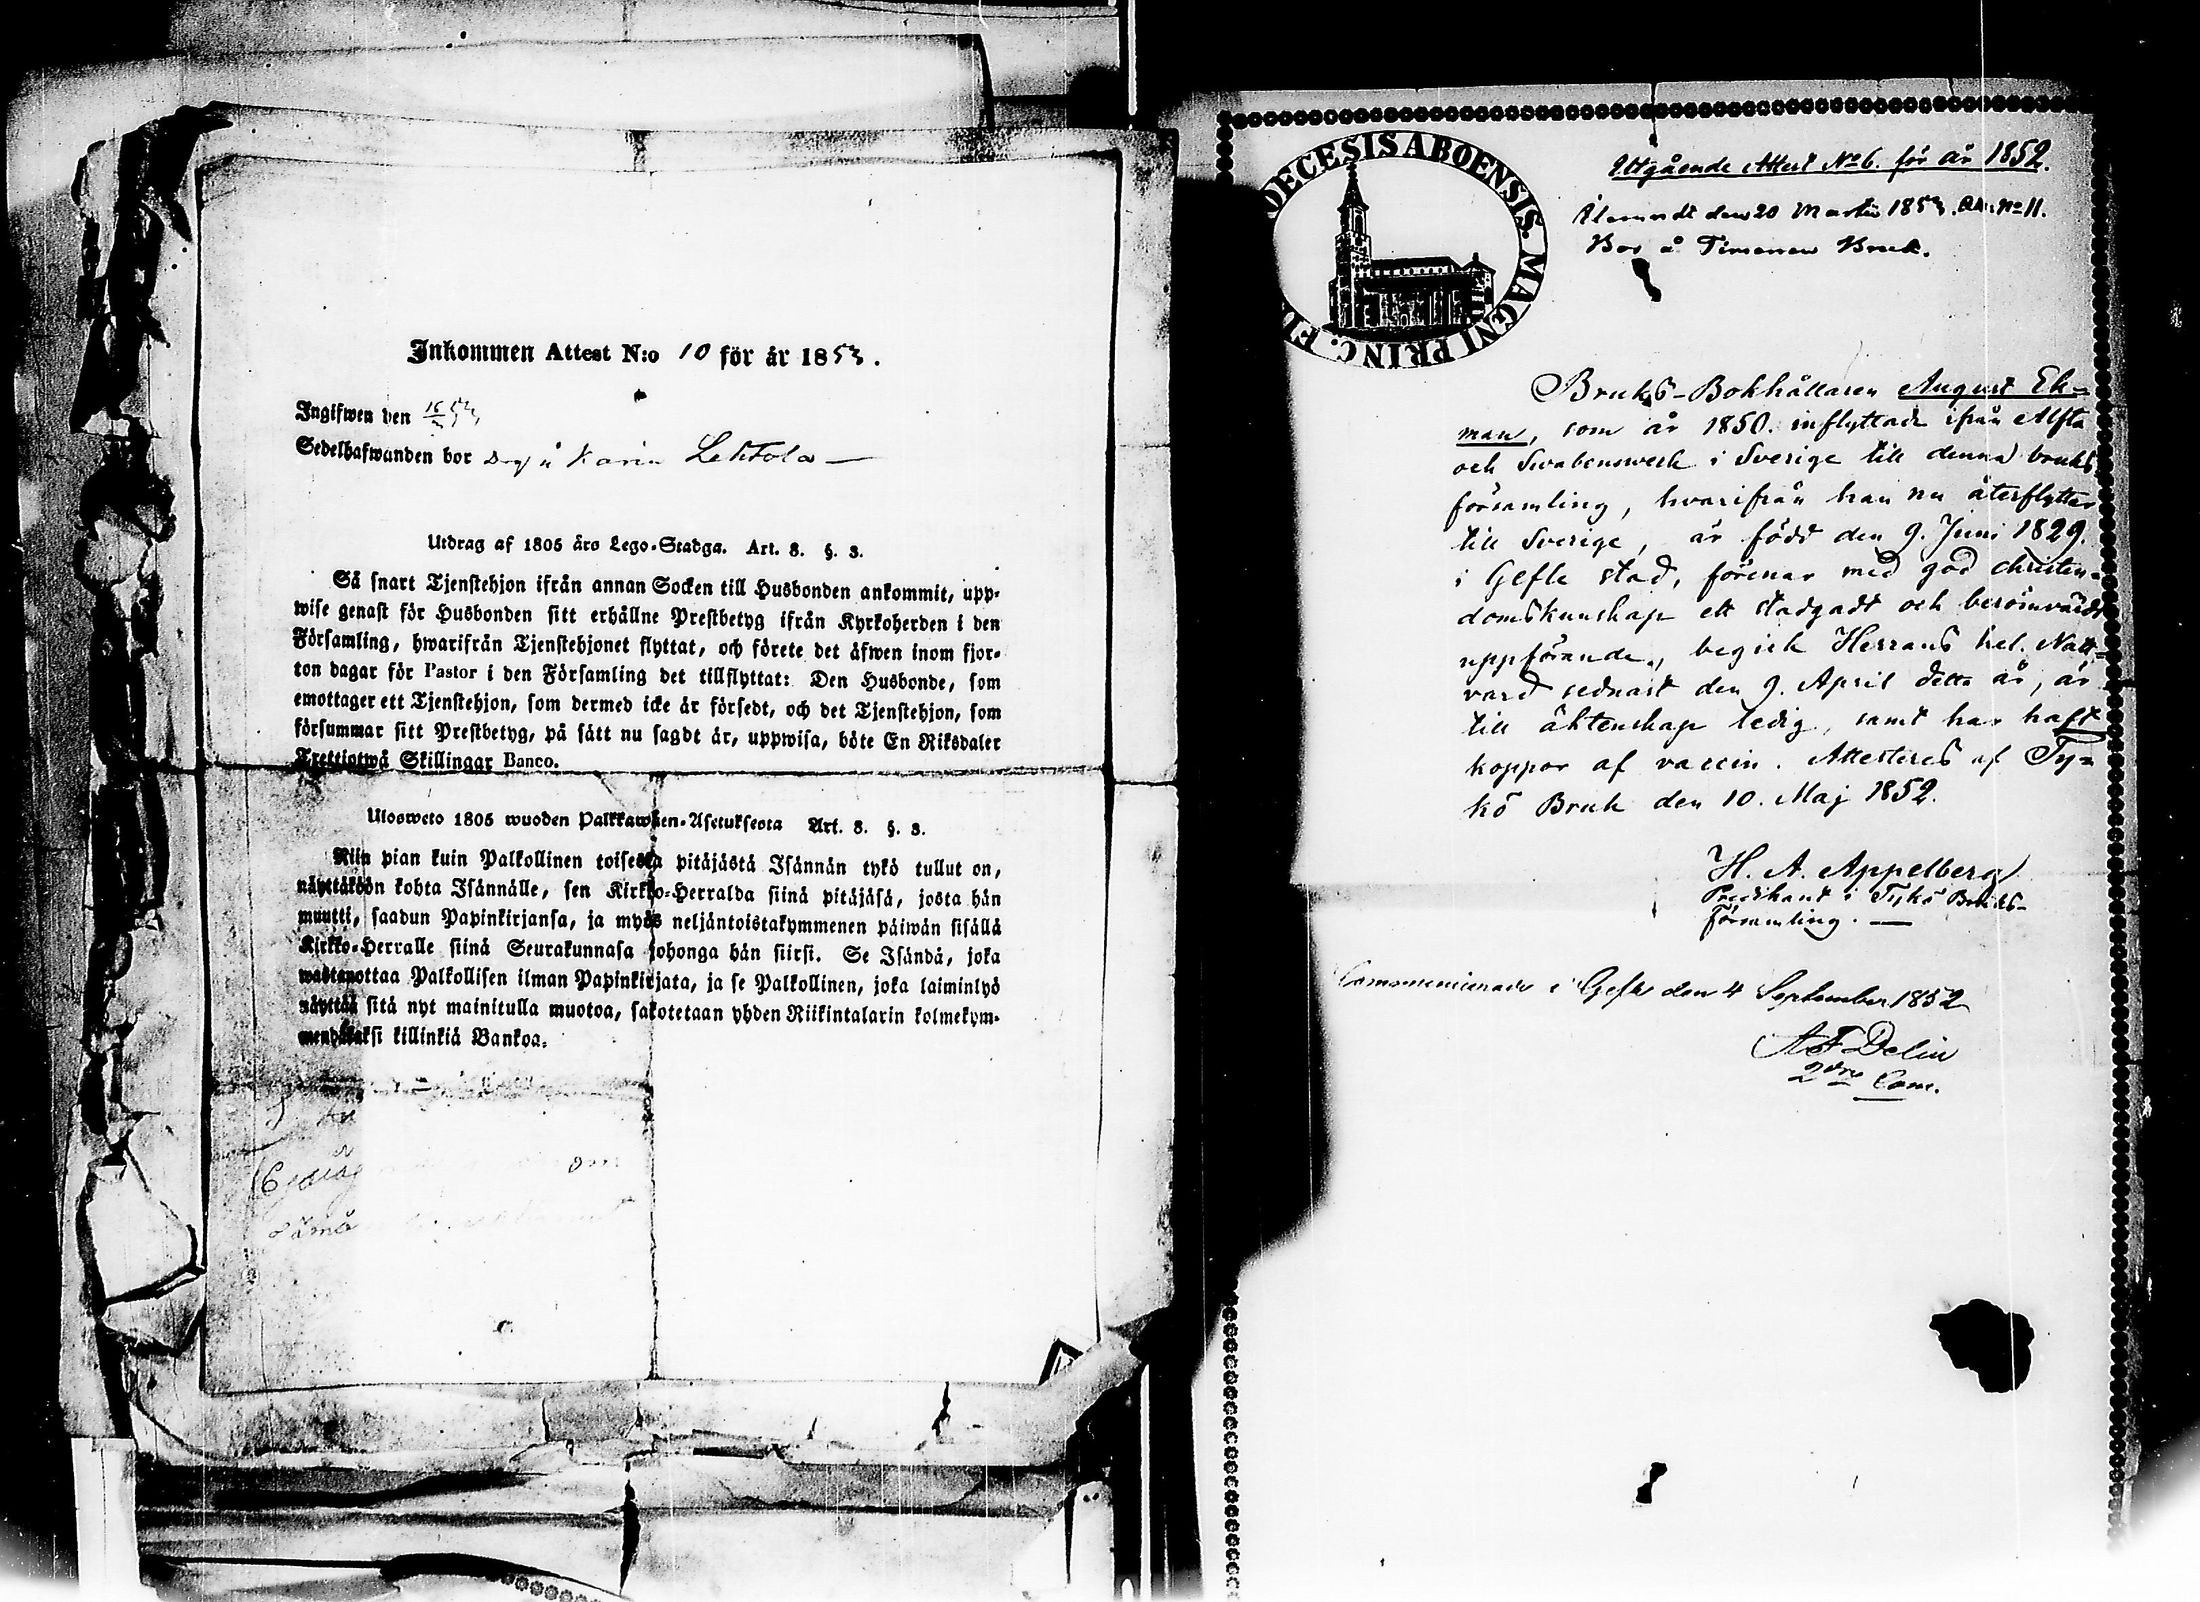 Inkommen Attest N:o 10 för år 1853.
Ingifwen den 16/3 53
Sedelhafwanden bor Karin Lehtola —
Utdrag af 1805 års Lego-Stadga. Art. 8. §. 3.
Så snart Tjenstehjon ifrån annan Socken till Husbonden ankommit, upp-
wise genast för Husbonden sitt erhållne Prestbetyg ifrån Kyrkoherden i den
Församling, hwarifrån Tjenstehjonet flyttat, och förete det äfwen inom fjor-
ton dagar för Pastor i den Församling det tillflyttat: Den Husbonde, som
emottager ett Tjenstehjon, som dermed icke är försedt, och det Tjenstehjon, som
försummar sitt Prestbetyg, på sätt nu sagdt är, uppwisa, böte En Riksdaler
Trettiotwå Skillingar Banco.
Ulosweto 1805 wuoden Palkkawäen-Asetuksesta Art. 8. §. 3.
Niin pian kuin Palkollinen toisesta pitäjästä Isännän tykö tullut on,
näyttäköön kohta Isännälle, sen Kirkko-Herralda siinä pitäjäsä, josta hän
muutti, saadun Papinkirjansa, ja myös neljäntoistakymmenen päiwän sisällä
Kirkko-Herralle siinä Seurakunnasa johonga hän siirsi. Se Isändä, joka
wastanottaa Palkollisen ilman Papinkirjata, ja se Palkollinen, joka laiminlyö
näyttää sitä nyt mainitulla muotoa, sakotetaan yhden Riikintalarin kolmekym-
mendäkaksi killinkiä Bankoa.
OECESIS ABOENSIS. MAGNI PRINC. FI
Utgående Attest No 6. för år 1852.
den 20 Martii 1853. No 11.
Bor å Timonen Bruk.
Bruks-Bokhållaren August Ek-
man, som år 1850. inflyttade ifrån Alfta
och Swabenswerk i Sverige till denna bruks
församling, hvarifrån han nu återflyttar
till Sverige, är född den 9. Juni 1829.
i Gefle stad, förenar med god christen-
domskunskap ett stadgadt och berömvärdt
uppförande, begick Herrans hel. Natt-
vard sednast den 9. April detta år, är
till äktenskap ledig, samt har haft
koppor af vaccin. Attesteras af Ty-
kö Bruk den 10. Maj 1852.
H. A. Appelberg
Predikant i Tykö Bruks-
församling. —
Communicerade i Gefle den 4 September 1852
A F Delin
2dre Com.